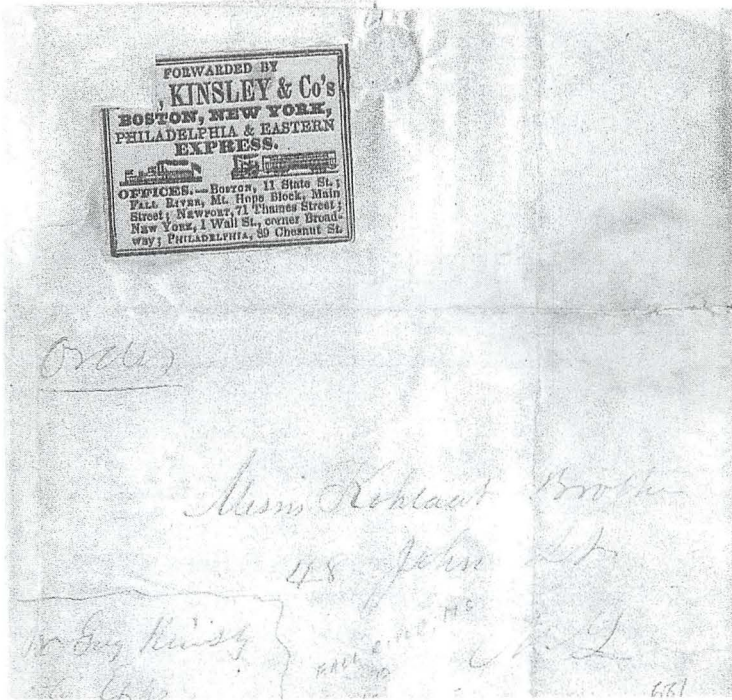 FORWARDED BY
, KINSLEY & Co's
BOSTON, NEW YORK,
PHILADELPHIA & EASTERN
EXPRESS.
OFFICES.—BOSTON, 11 State St.;
FALL RIVER, Mt. Hope Block, Main
Street; NEWPORT, 71 Thames Street;
NEW YORK, 1 Wall St., corner Broad-
way; PHILADELPHIA, 89 Chesnut St.
Order
Messrs Brother
48 John St
N. Y.
FALL
681